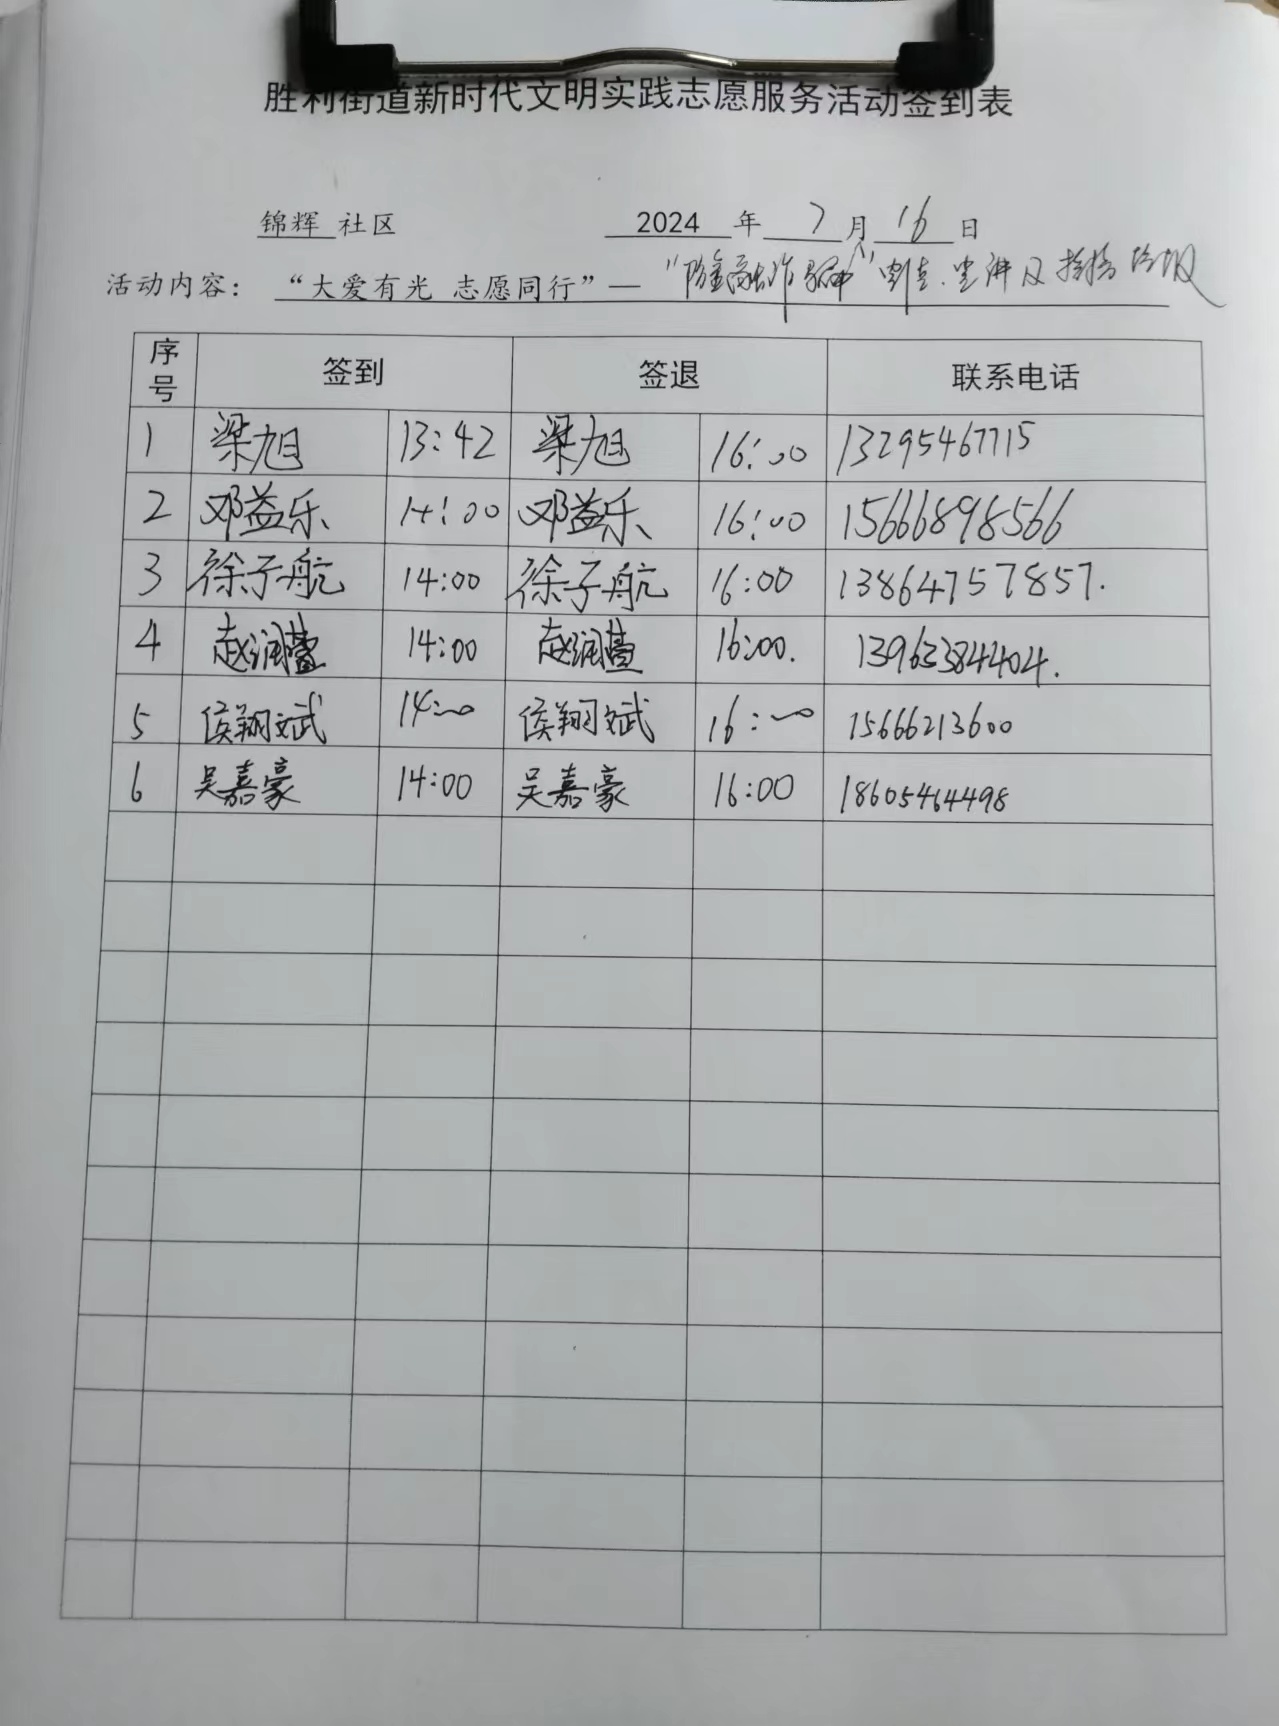 胜利街道新时代文明实践志愿服务活动签到表
锦辉 社区 2024 年 7 月 16 日
活动内容： “大爱有光 志愿同行”— “防金融诈骗” 宣讲及捡拾垃圾
序号 签到 签退 联系电话
1 梁旭 13:42 梁旭 16:00 13295467715
2 邓益乐 14:00 邓益乐 16:00 15666898566
3 徐子航 14:00 徐子航 16:00 13864757857.
4 赵润萱 14:00 赵润萱 16:00. 13963384404.
5 侯翔斌 14:00 侯翔斌 16:00 15666213600
6 吴嘉豪 14:00 吴嘉豪 16:00 18605464498